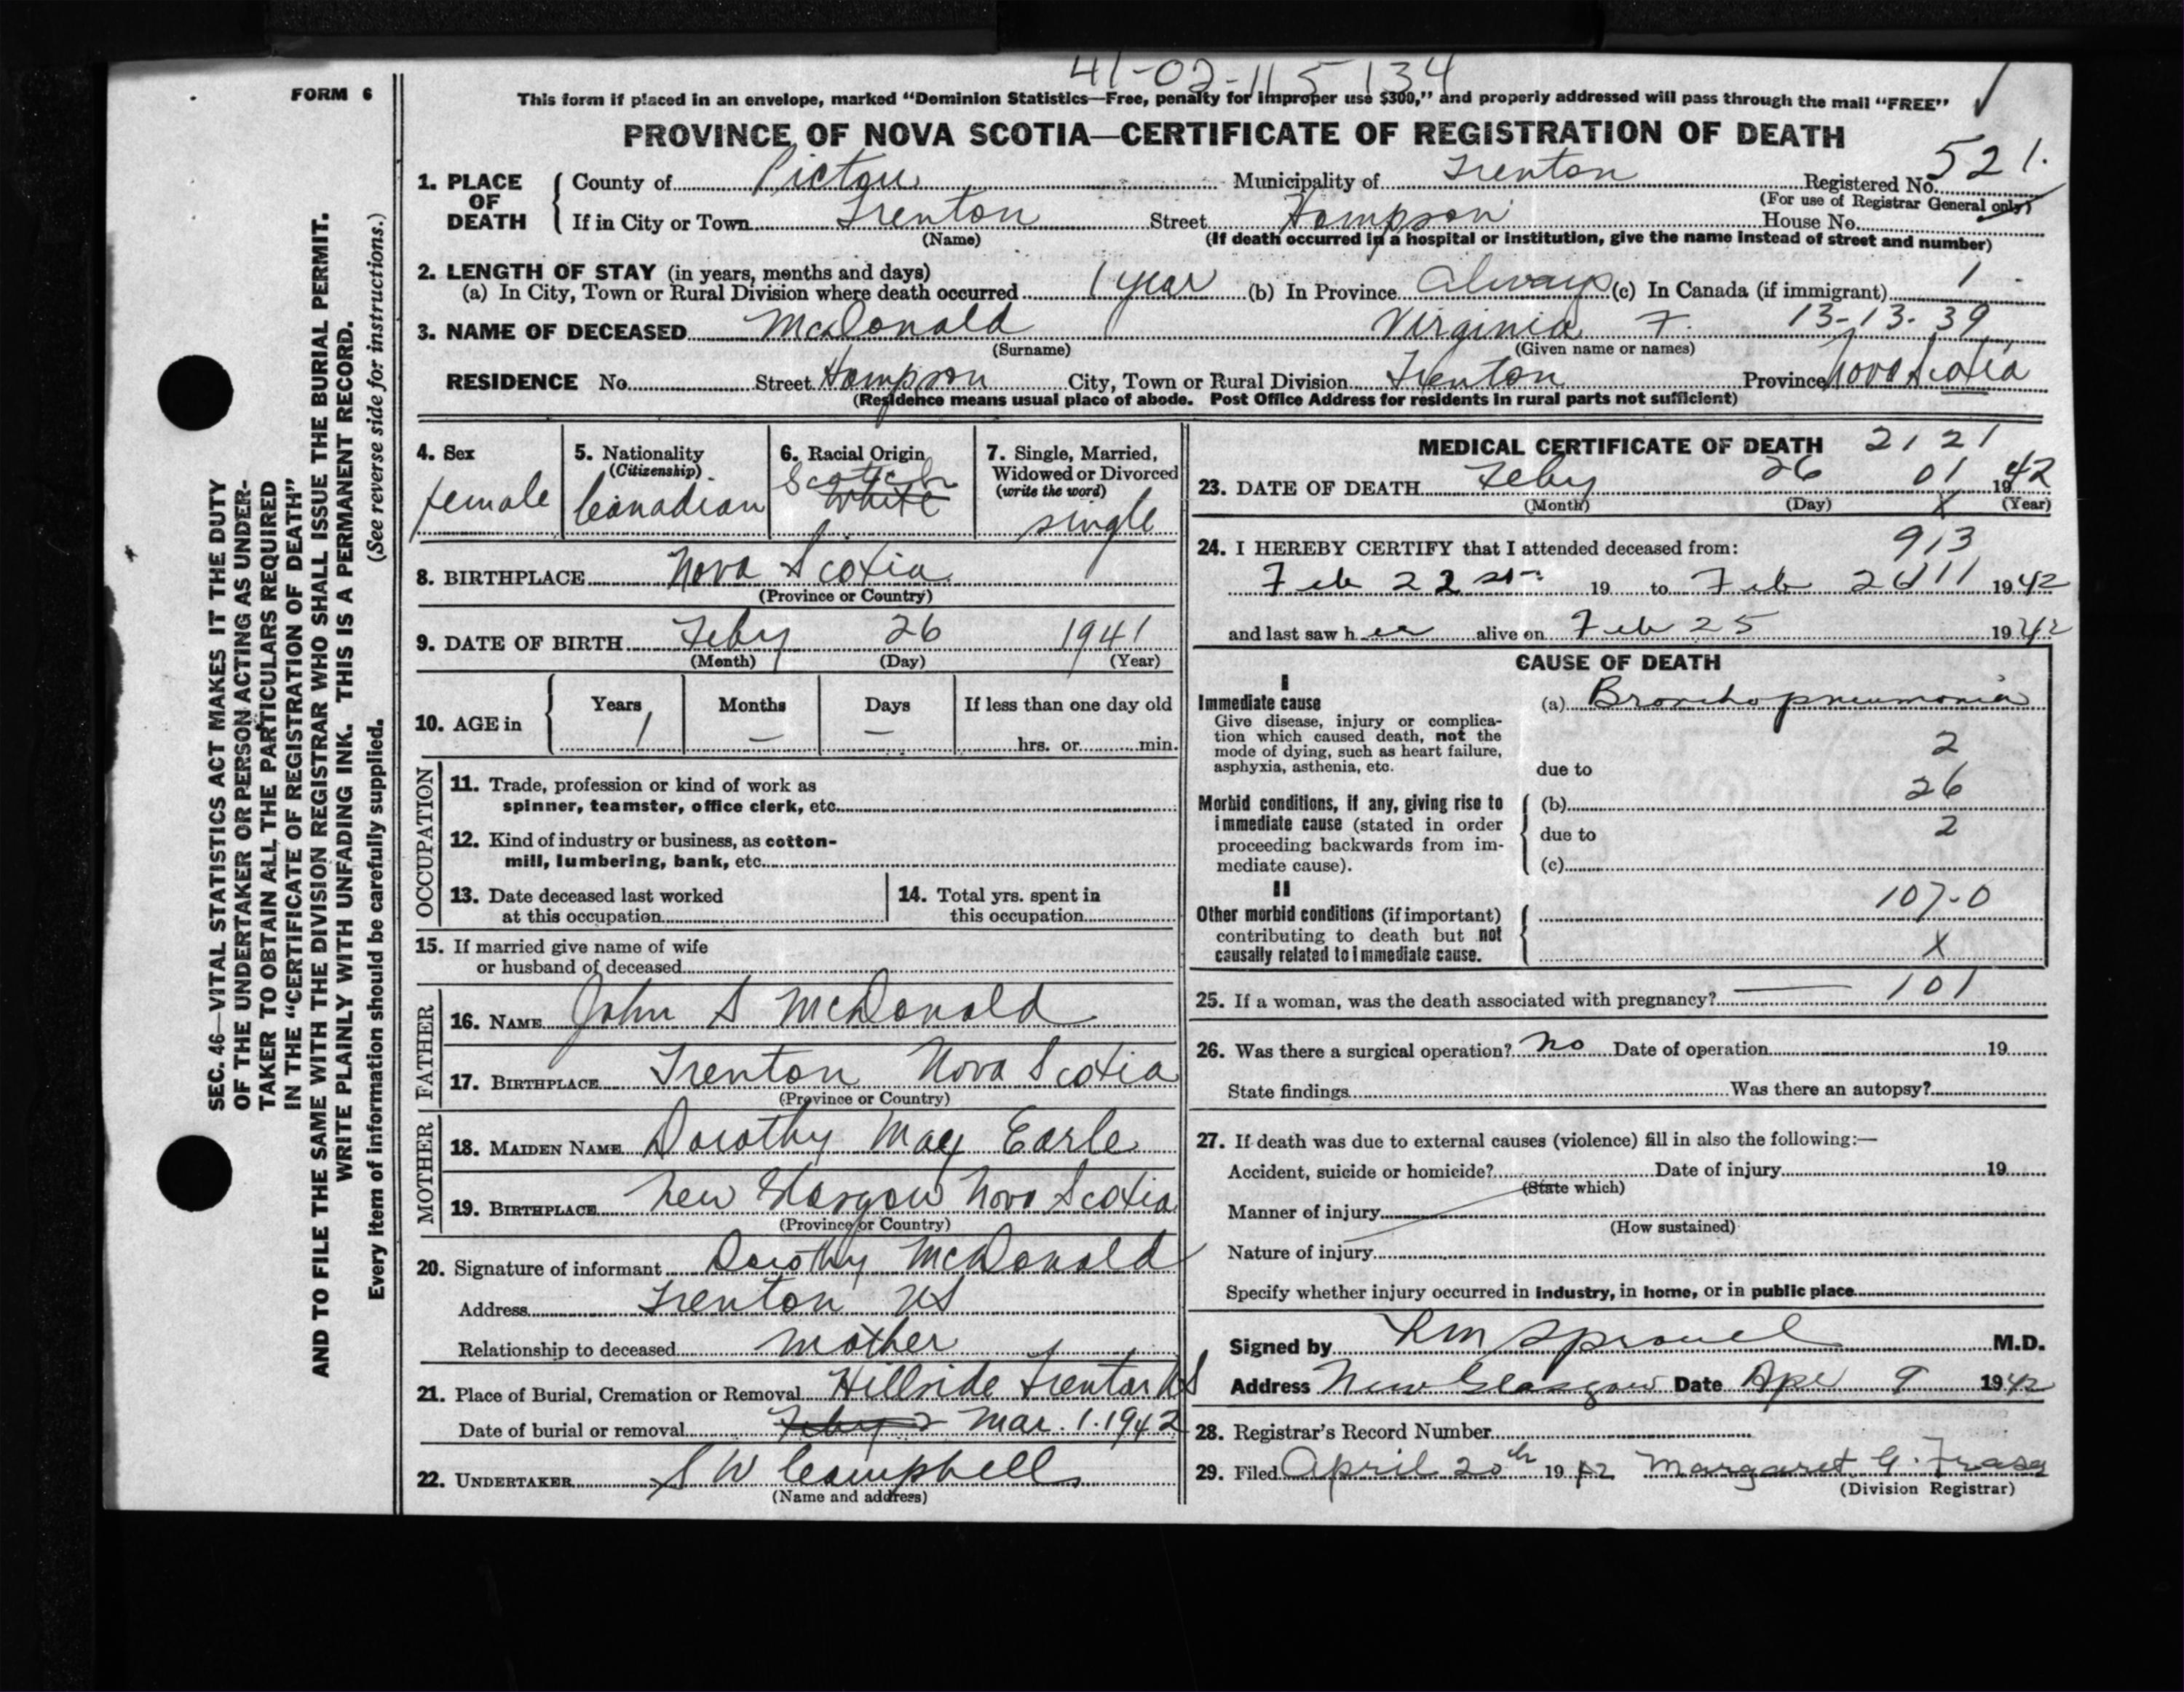 41-02-115134
FORM 6
This form if placed in an envelope, marked “Dominion Statistics—Free, penalty for improper use $300,” and properly addressed will pass through the mail “FREE”
PROVINCE OF NOVA SCOTIA—CERTIFICATE OF REGISTRATION OF DEATH
1. PLACE OF DEATH County of Pictou Municipality of Trenton Registered No. 521.
(For use of Registrar General only)
If in City or Town Trenton Street Hampson House No.
(Name) (If death occurred in a hospital or institution, give the name instead of street and number)
2. LENGTH OF STAY (in years, months and days)
(a) In City, Town or Rural Division where death occurred 1 year (b) In Province Always (c) In Canada (if immigrant) 1
3. NAME OF DECEASED McDonald Virginia F. 13-13-39
(Surname) (Given name or names)
RESIDENCE No. Street Hampson City, Town or Rural Division Trenton Province Nova Scotia
(Residence means usual place of abode. Post Office Address for residents in rural parts not sufficient)
4. Sex
female
5. Nationality
(Citizenship)
Canadian
6. Racial Origin
Scotch
White
7. Single, Married,
Widowed or Divorced
(write the word)
single
8. BIRTHPLACE Nova Scotia
(Province or Country)
9. DATE OF BIRTH Feby 26 1941
(Month) (Day) (Year)
10. AGE in Years Months Days If less than one day old
1 — — hrs. or min.
OCCUPATION
11. Trade, profession or kind of work as
spinner, teamster, office clerk, etc.
12. Kind of industry or business, as cotton-
mill, lumbering, bank, etc.
13. Date deceased last worked
at this occupation
14. Total yrs. spent in
this occupation
15. If married give name of wife
or husband of deceased
FATHER
16. NAME John S McDonald
17. BIRTHPLACE Trenton Nova Scotia
(Province or Country)
MOTHER
18. MAIDEN NAME Dorothy May Earle
19. BIRTHPLACE New Glasgow Nova Scotia
(Province or Country)
20. Signature of informant Dorothy McDonald
Address Trenton NS
Relationship to deceased mother
21. Place of Burial, Cremation or Removal Hillside Trenton NS
Date of burial or removal Feby 2 Mar. 1. 1942
22. UNDERTAKER S W Campbell
(Name and address)
MEDICAL CERTIFICATE OF DEATH 2121
23. DATE OF DEATH Feby 26 01 1942
(Month) (Day) X (Year)
24. I HEREBY CERTIFY that I attended deceased from: 913
Feb 22 19 to Feb 26 11 1942
and last saw her alive on Feb 25 1942
CAUSE OF DEATH
I
Immediate cause
Give disease, injury or complica-
tion which caused death, not the
mode of dying, such as heart failure,
asphyxia, asthenia, etc.
(a) Bronchopneumonia
2
due to
26
Morbid conditions, if any, giving rise to
immediate cause (stated in order
proceeding backwards from im-
mediate cause).
(b)
due to 2
(c)
II
Other morbid conditions (if important)
contributing to death but not
causally related to immediate cause.
107-0
X
25. If a woman, was the death associated with pregnancy? — 101
26. Was there a surgical operation? No Date of operation 19
State findings Was there an autopsy?
27. If death was due to external causes (violence) fill in also the following:—
Accident, suicide or homicide? Date of injury 19
(State which)
Manner of injury
(How sustained)
Nature of injury
Specify whether injury occurred in industry, in home, or in public place
Signed by R M Sproull M.D.
Address New Glasgow Date Apr 9 1942
28. Registrar's Record Number
29. Filed April 20th 1942 Margaret G. Fraser
(Division Registrar)
SEC. 46—VITAL STATISTICS ACT MAKES IT THE DUTY
OF THE UNDERTAKER OR PERSON ACTING AS UNDER-
TAKER TO OBTAIN ALL THE PARTICULARS REQUIRED
IN THE “CERTIFICATE OF REGISTRATION OF DEATH”
AND TO FILE THE SAME WITH THE DIVISION REGISTRAR WHO SHALL ISSUE THE BURIAL PERMIT.
WRITE PLAINLY WITH UNFADING INK. THIS IS A PERMANENT RECORD.
Every item of information should be carefully supplied. (See reverse side for instructions.)